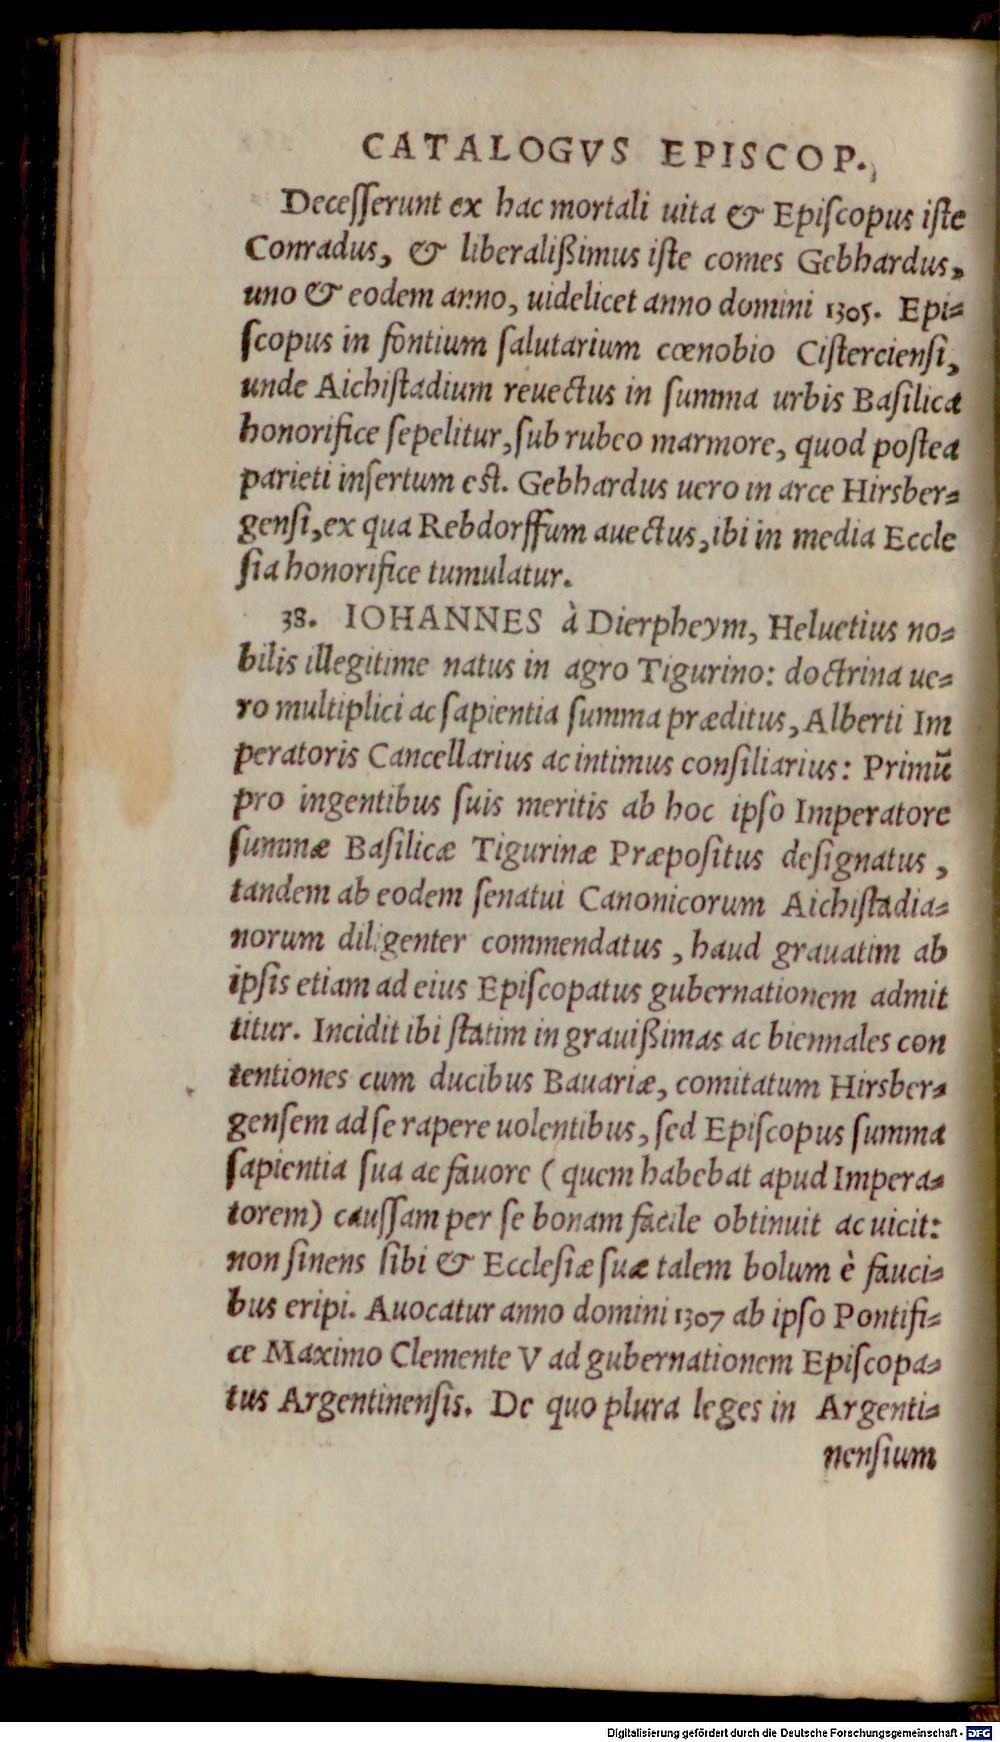 CATALOGVS EPISCOP.
Deceſſerunt ex hac mortali uita & Epiſcopus iſte
Conradus, & liberalißimus iſte comes Gebhardus,
uno & eodem anno, uidelicet anno domini 1305. Epi-
ſcopus in fontium ſalutarium cœnobio Ciſtercienſi,
unde Aichiſtadium reuectus in ſumma urbis Baſilica
honorifice ſepelitur, ſub rubeo marmore, quod poſtea
parieti inſertum eſt. Gebhardus uero in arce Hirsber-
genſi, ex qua Rebdorffum auectus, ibi in media Eccle
ſia honorifice tumulatur.
38. IOHANNES à Dierpheym, Heluetius no-
bilis illegitime natus in agro Tigurino: doctrina ue-
ro multiplici ac ſapientia ſumma præditus, Alberti Im
peratoris Cancellarius ac intimus conſiliarius: Primū
pro ingentibus ſuis meritis ab hoc ipſo Imperatore
ſummæ Baſilicæ Tigurinæ Præpoſitus deſignatus,
tandem ab eodem ſenatui Canonicorum Aichiſtadia-
norum diligenter commendatus, haud grauatim ab
ipſis etiam ad eius Epiſcopatus gubernationem admit
titur. Incidit ibi ſtatim in grauißimas ac biennales con
tentiones cum ducibus Bauariæ, comitatum Hirsber-
genſem ad ſe rapere uolentibus, ſed Epiſcopus ſumma
ſapientia ſua ac fauore (quem habebat apud Impera-
torem) cauſſam per ſe bonam facile obtinuit ac uicit:
non ſinens ſibi & Eccleſiæ ſuæ talem bolum è fauci-
bus eripi. Auocatur anno domini 1307 ab ipſo Pontifi-
ce Maximo Clemente V ad gubernationem Epiſcopa-
tus Argentinenſis. De quo plura leges in Argenti-
nenſium
Digitalisierung gefördert durch die Deutsche Forschungsgemeinschaft - DFG